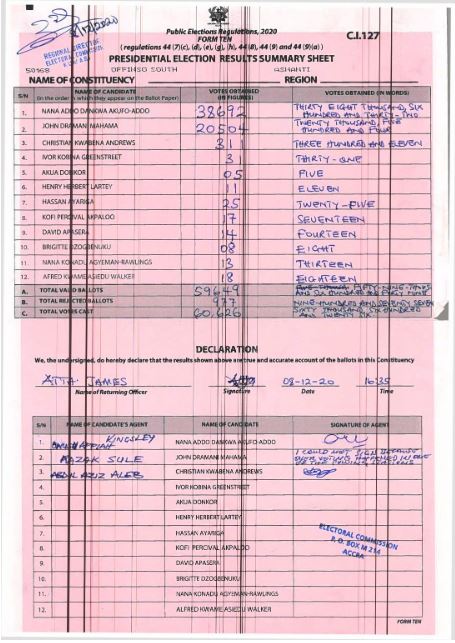 Public Elections Regulations, 2020
FORM TEN
C.I.127
(regulations 44 (7)(c), (d), (e), (g), (h), 44 (8), 44 (9) and 44 (9)(a))
PRESIDENTIAL ELECTION RESULTS SUMMARY SHEET
REGIONAL DIRECTOR
ELECTORAL COMMISSION
OFFINSO SOUTH ASHANTI
NAME OF CONSTITUENCY REGION
S/N NAME OF CANDIDATE (in the order in which they appear on the Ballot Paper) VOTES OBTAINED (IN FIGURES) VOTES OBTAINED (IN WORDS)
1. NANA ADDO DANKWA AKUFO-ADDO 38692 THIRTY EIGHT THOUSAND, SIX
HUNDRED AND THIRTY-TWO
2. JOHN DRAMANI MAHAMA 20504 TWENTY THOUSAND, FIVE
HUNDRED AND FOUR
3. CHRISTIAN KWABENA ANDREWS 311 THREE HUNDRED AND ELEVEN
4. IVOR KOBINA GREENSTREET 31 THIRTY-ONE
5. AKUA DONKOR 05 FIVE
6. HENRY HERBERT LARTEY 11 ELEVEN
7. HASSAN AYARIGA 25 TWENTY-FIVE
8. KOFI PERCIVAL AKPALOO 17 SEVENTEEN
9. DAVID APASERA 14 FOURTEEN
10. BRIGITTE DZOGBENUKU 08 EIGHT
11. NANA KONADU AGYEMAN-RAWLINGS 13 THIRTEEN
12. ALFRED KWAME ASIEDU WALKER 18 EIGHTEEN
A. TOTAL VALID BALLOTS 59649 FIFTY-NINE
AND SIX HUNDRED AND FORTY NINE
B. TOTAL REJECTED BALLOTS 977 NINE-HUNDRED AND SEVENTY SEVEN
C. TOTAL VOTES CAST 60,626 SIXTY THOUSAND, SIX HUNDRED
AND TWENTY SIX
DECLARATION
We, the undersigned, do hereby declare that the results shown above are true and accurate account of the ballots in this Constituency
ATTA JAMES 08-12-20 16:35
Name of Returning Officer Signature Date Time
S/N NAME OF CANDIDATE'S AGENT NAME OF CANDIDATE SIGNATURE OF AGENT
1. KINGSLEY NANA ADDO DANKWA AKUFO-ADDO
2. RAZAK SULE JOHN DRAMANI MAHAMA I COULD NOT SIGN BECAUSE
OVER VOTING HAPPENED IN ONE
OF THE POLLING STATIONS
3. ABDUL AZIZ CHRISTIAN KWABENA ANDREWS
4. IVOR KOBINA GREENSTREET
5. AKUA DONKOR
6. HENRY HERBERT LARTEY
7. HASSAN AYARIGA
8. KOFI PERCIVAL AKPALOO
9. DAVID APASERA
10. BRIGITTE DZOGBENUKU
11. NANA KONADU AGYEMAN-RAWLINGS
12. ALFRED KWAME ASIEDU WALKER
ELECTORAL COMMISSION
P. O. BOX M 214
ACCRA
FORM TEN